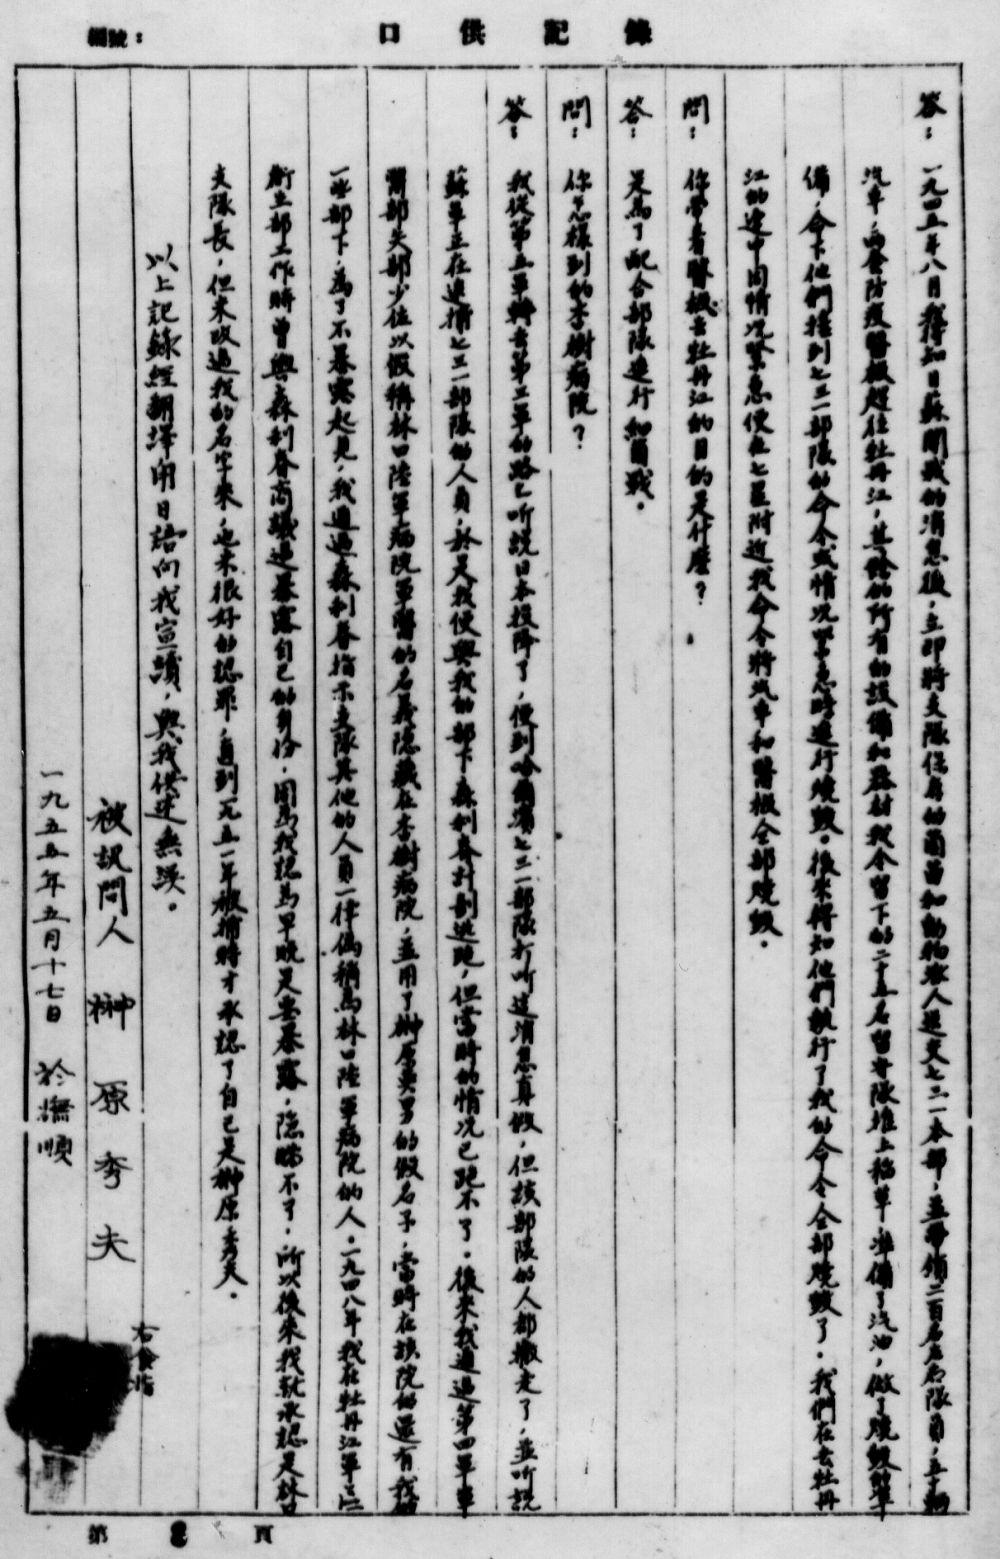 口供記錄
編號：
答：一九四五年八月獲知日蘇開戰的消息後，立即將支隊保存的菌苗和動物派人送交七三一本部，並帶領二百名左右隊員，五十輛
汽車，兩套防疫醫板趕往牡丹江，其餘的所有的設備和器材我令留下的二十五名留守隊堆上稻草，準備了汽油，做了燒毀的準
備，令下他們接到七三一部隊的命令或情況緊急時進行燒毀。後來得知他們執行了我的命令全部燒毀了。我們在去牡丹
江的途中因情況緊急便在七星附近我命令將汽車和醫板全部燒毀。
問：你帶着醫板去牡丹江的目的是什麼？
答：是為了配合部隊進行細菌戰。
問：你怎樣到的李樹病院？
答：我從第五軍轉去第三軍的路上听說日本投降了，便到哈爾濱七三一部隊打听這消息真假，但該部隊的人都撤走了，並听說
蘇軍正在追捕七三一部隊的人員，於是我便與我的部下森利春計劃逃跑，但當時的情況已跑不了。後來我通過第四軍軍
醫部夫部少佐以假稱林口陸軍病院軍醫的名義隱藏在李樹病院，並用了榊原英男的假名子，當時在該院的還有我的
一些部下，為了不暴露起見，我通過森利春指示支隊其他的人員一律偽稱為林口陸軍病院的人。一九四八年我在牡丹江軍區
衛生部工作時曾與森利春商議過暴露自己的身份，因為我認為早晚是要暴露，隱瞞不了，所以後來我就承認是林口
支隊長，但未改過我的名字來，也未很好的認罪，直到一九五一年被捕時才承認了自己是榊原秀夫。
以上記錄經翻譯用日語向我宣讀，與我供述無誤。
被訊問人 榊原秀夫
右食指
一九五五年五月十七日 於撫順
第 頁